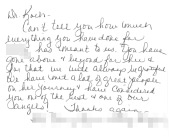 Dr. Koch-
Can't tell you how much
everything you have done for
has meant to us. You have
gone above & beyond for her &
for that we will always be grateful
We have met a lot of great people
on her journey & have considered
you one of the best & one of our
"angels". Thanks again,